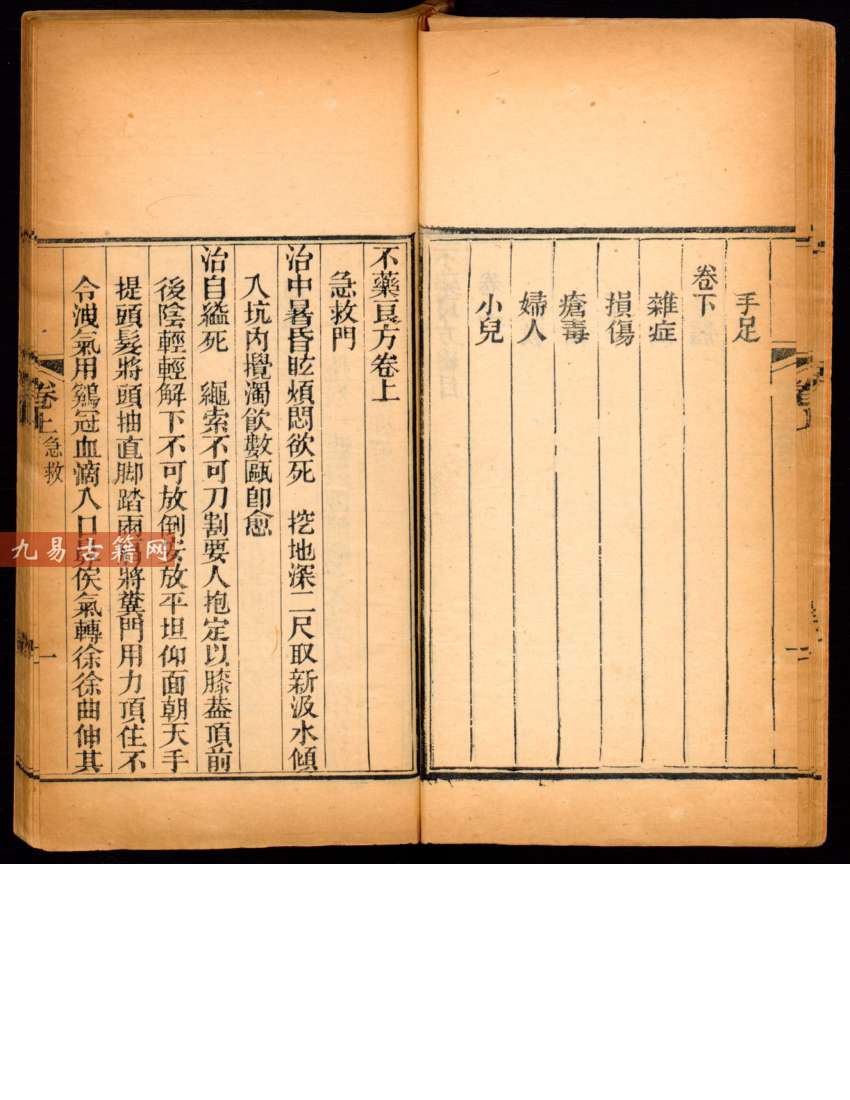 手足
卷下
雜症
損傷
瘡毒
婦人
小兒
不藥良方卷上
急救門
治中暑昏眩煩悶欲死 挖地深二尺取新汲水傾
入坑內攪濁飲數甌卽愈
治自縊死 繩索不可刀割要人抱定以膝葢頂前
後陰輕輕解下不可放倒放平坦仰面朝天手
提頭髮將頭抽直脚踏兩將糞門用力頂住不
令洩氣用鷄冠血滴入口俟氣轉徐徐曲伸其
卷上
急救
一
九易古籍网